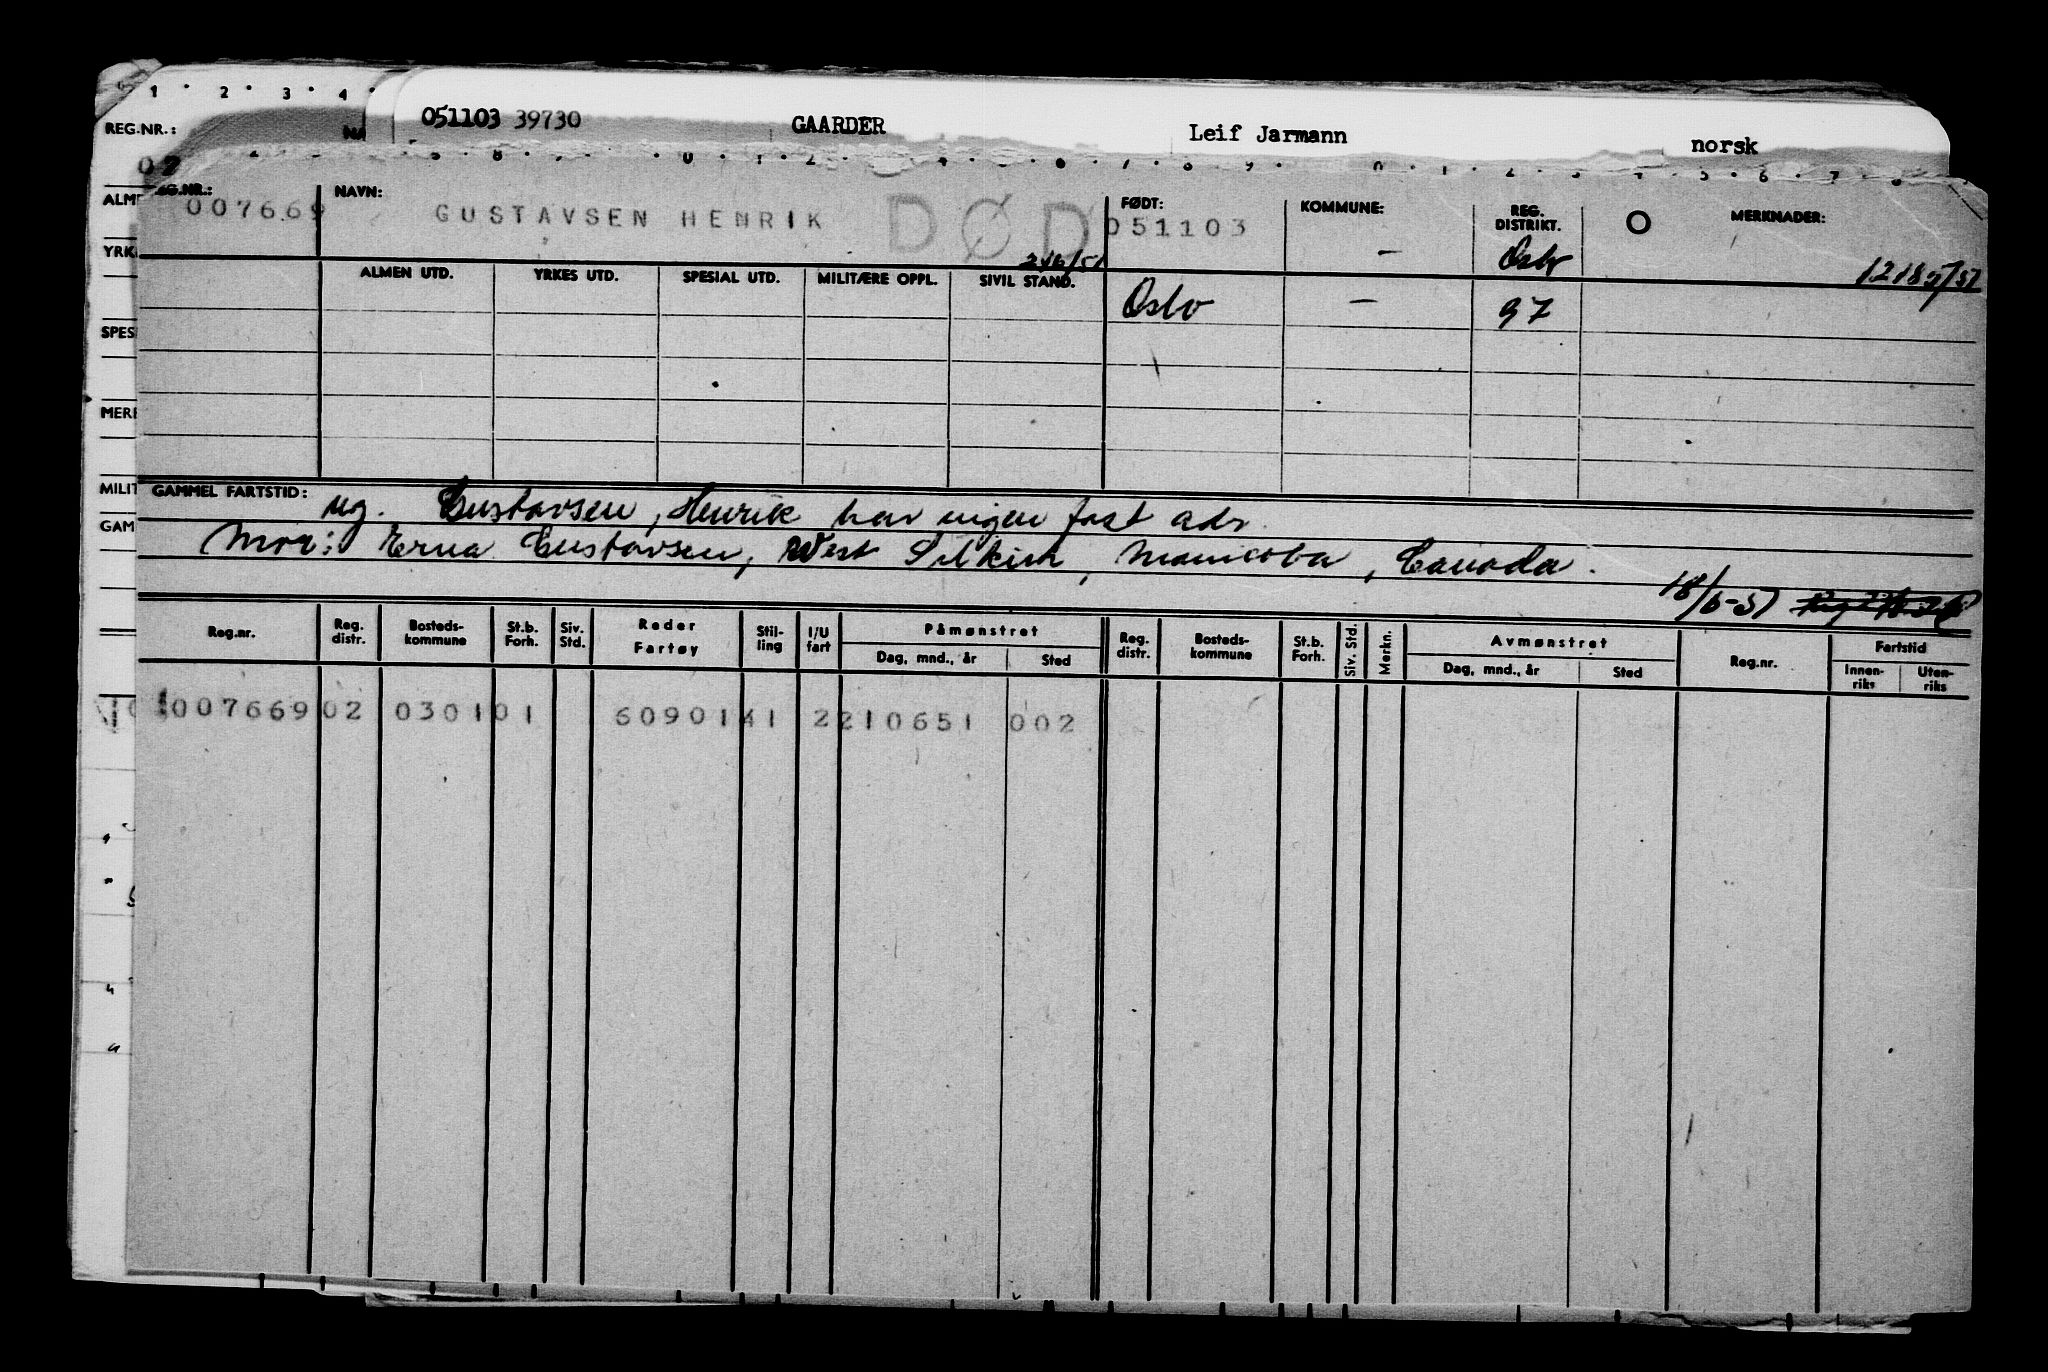 1 2 3 4
REG.NR.: 051103 39730 GAARDER Leif Jarmann norsk
02
REG.NR.: NAVN: FØDT: KOMMUNE: REG. DISTRIKT. MERKNADER:
007669 GUSTAVSEN HENRIK DØD 051103 - Oslo
ALMEN UTD. YRKES UTD. SPESIAL UTD. MILITÆRE OPPL. SIVIL STAND.
Oslo - 97
ALM
YRK
SPES
MERK
MILIT
GAM
GAMMEL FARTSTID: ug. Gustavsen, Henrik har ingen fast adr.
Mor: Erna Gustavsen, West Selkirk, Manitoba, Canada.
18/6-51
Reg.nr. Reg. distr. Bosteds-kommune St.b. Forh. Siv. Std. Reder Fartøy Stil-ling I/U fart Påmønstret Dag, mnd., år Sted Reg. distr. Bosteds-kommune St.b. Forh. Siv. Std. Merkn. Avmønstret Dag, mnd., år Sted Reg.nr. Fartstid Innen-riks Uten-riks
007669 02 0301 01 6090141 2 210651 002